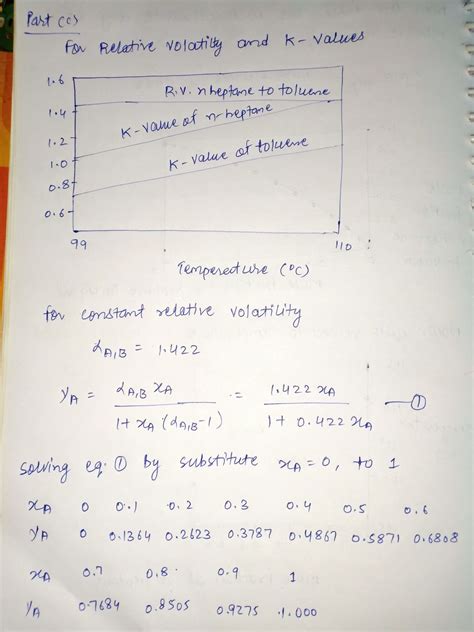 Part (c)
For Relative volatilty and K-values
1.6
R.V. nheptane to toluene
1.4
K-value of n-heptane
1.2
K-value of toluene
1.0
0.8
0.6
99
110
Temperature (°C)
for constant relative volatility
αA,B = 1.422
yA = αA,B xA / 1+ xA (αA,B-1) = 1.422 xA / 1+ 0.422 xA — ①
solving eq. ① by substitute xA = 0, to 1
xA 0 0.1 0.2 0.3 0.4 0.5 0.6
yA 0 0.1364 0.2623 0.3787 0.4867 0.5871 0.6808
xA 0.7 0.8 0.9 1
yA 0.7684 0.8505 0.9275 1.000